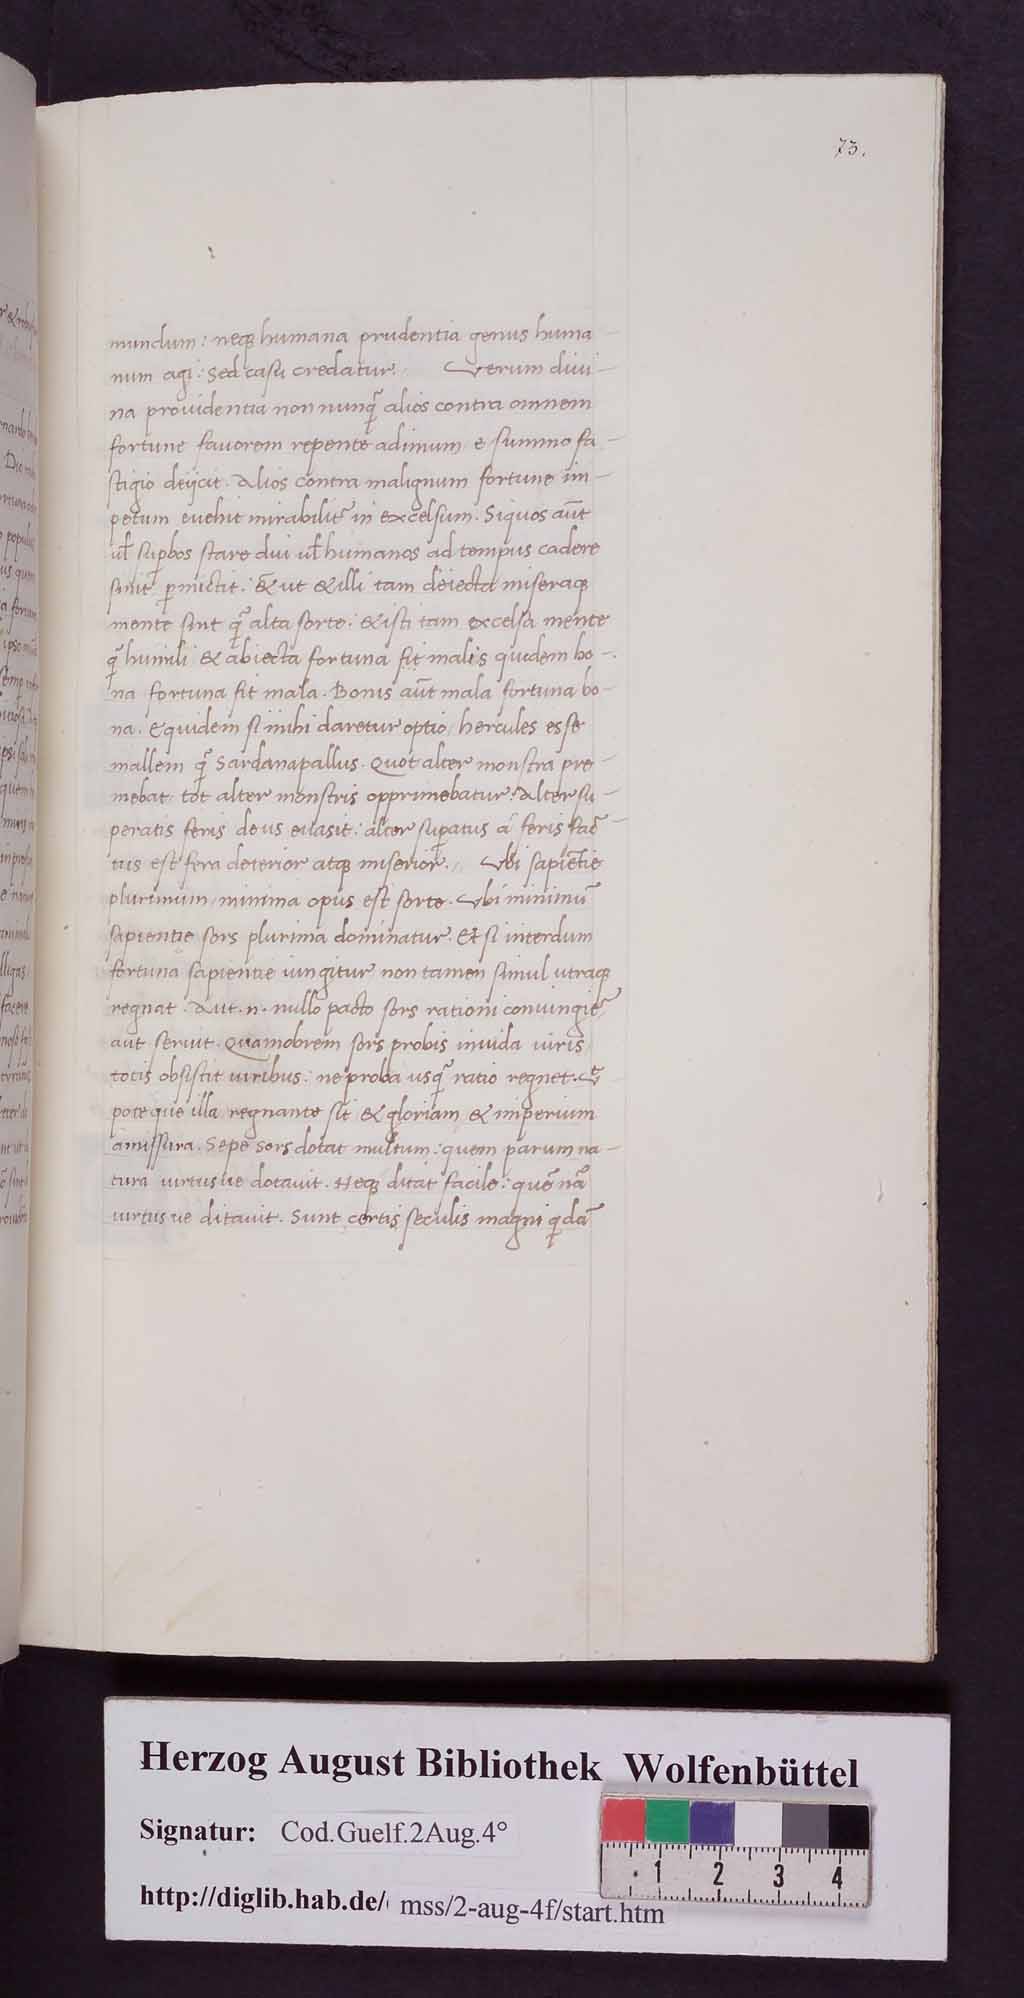 73.
mundum: neqꝫ humana prudentia genus huma-
num agi: Sed casu credatur. Verum diui-
na prouidentia non nunq̃ alios contra omnem
fortune fauorem repente ad imum e summo fa-
stigio deijcit. Alios contra malignum fortune im-
petum euehit mirabilit̃ in excelsum. Siquos aũt
uł suꝑbos stare diu uł humanos ad tempus cadere
sinit ꝑmictit. & ut & illi tam deiecta miseraqꝫ
mente sint q̃ alta sorte: & isti tam excelsa mente
q̃ humili & abiecta fortuna fit malis quidem bo-
na fortuna fit mala. Bonis aũt mala fortuna bo-
na. Equidem si mihi daretur optio, hercules esse
mallem q̃ Sardanapallus. Quot alter monstra pre-
mebat: tot alter monstris opprimebatur. Alter su-
peratis feris deus euasit: alter suꝑatus á feris fac̃-
tus est fera deterior atqꝫ miserior. Vbi sapiẽtie
plurimum, minima opus est sorte. Vbi minimũ
sapientie sors plurima dominatur. Et si interdum
fortuna sapientie iungitur non tamen simul utraqꝫ
regnat. Aut .n. nullo pacto sors rationi conuingit̃
aut seruit. Quamobrem sors probis inuida uiris
totis obsistit uiribus: ne proba usq̃ ratio regnet. Vt̃
pote que illa regnante sit & gloriam & imperium
amissura. Sepe sors dotat multum: quem parum na-
tura uirtus ue dotauit. Neqꝫ ditat facile: quẽ nã
uirtus ue ditauit. Sunt certis seculis magni q̃dã
Herzog August Bibliothek Wolfenbüttel
Signatur: Cod.Guelf.2Aug.4°
http://diglib.hab.de/ mss/2-aug-4f/start.htm
1 2 3 4